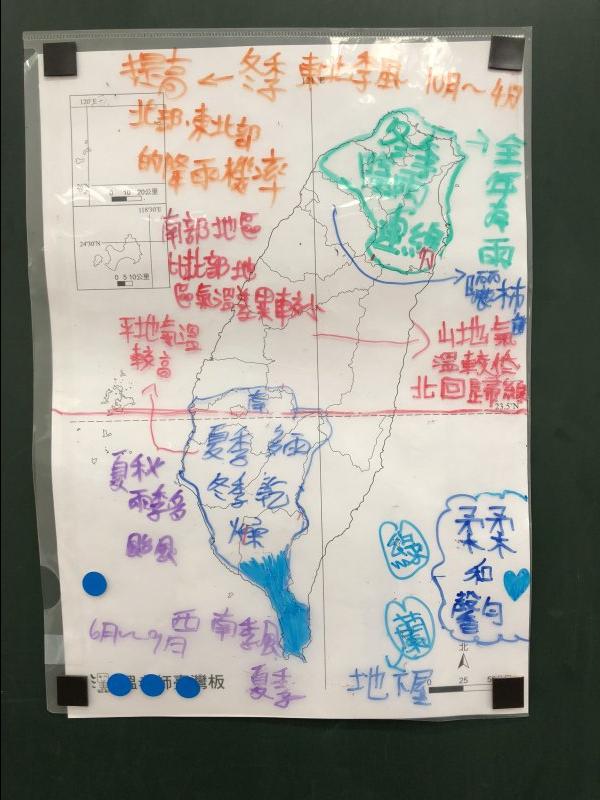 提高 ← 冬季 東北季風 10月~4月
北部、東北部
的降雨機率
120°E
0 10 20公里
118°30'E
24°30'N
0 5 10公里
冬季
連綿
全
年有雨
南部地區
比北部地
區氣溫差異較小
平地氣溫
較高
山地氣
溫較低
北回歸線
23.5°N
夏季
冬季乾
燥
夏秋
雨季多
颱風
6月~9月
西南季風
夏季
綠
蘭
地下屋
柔柔
和
馨勻
北
0 25
師臺灣板